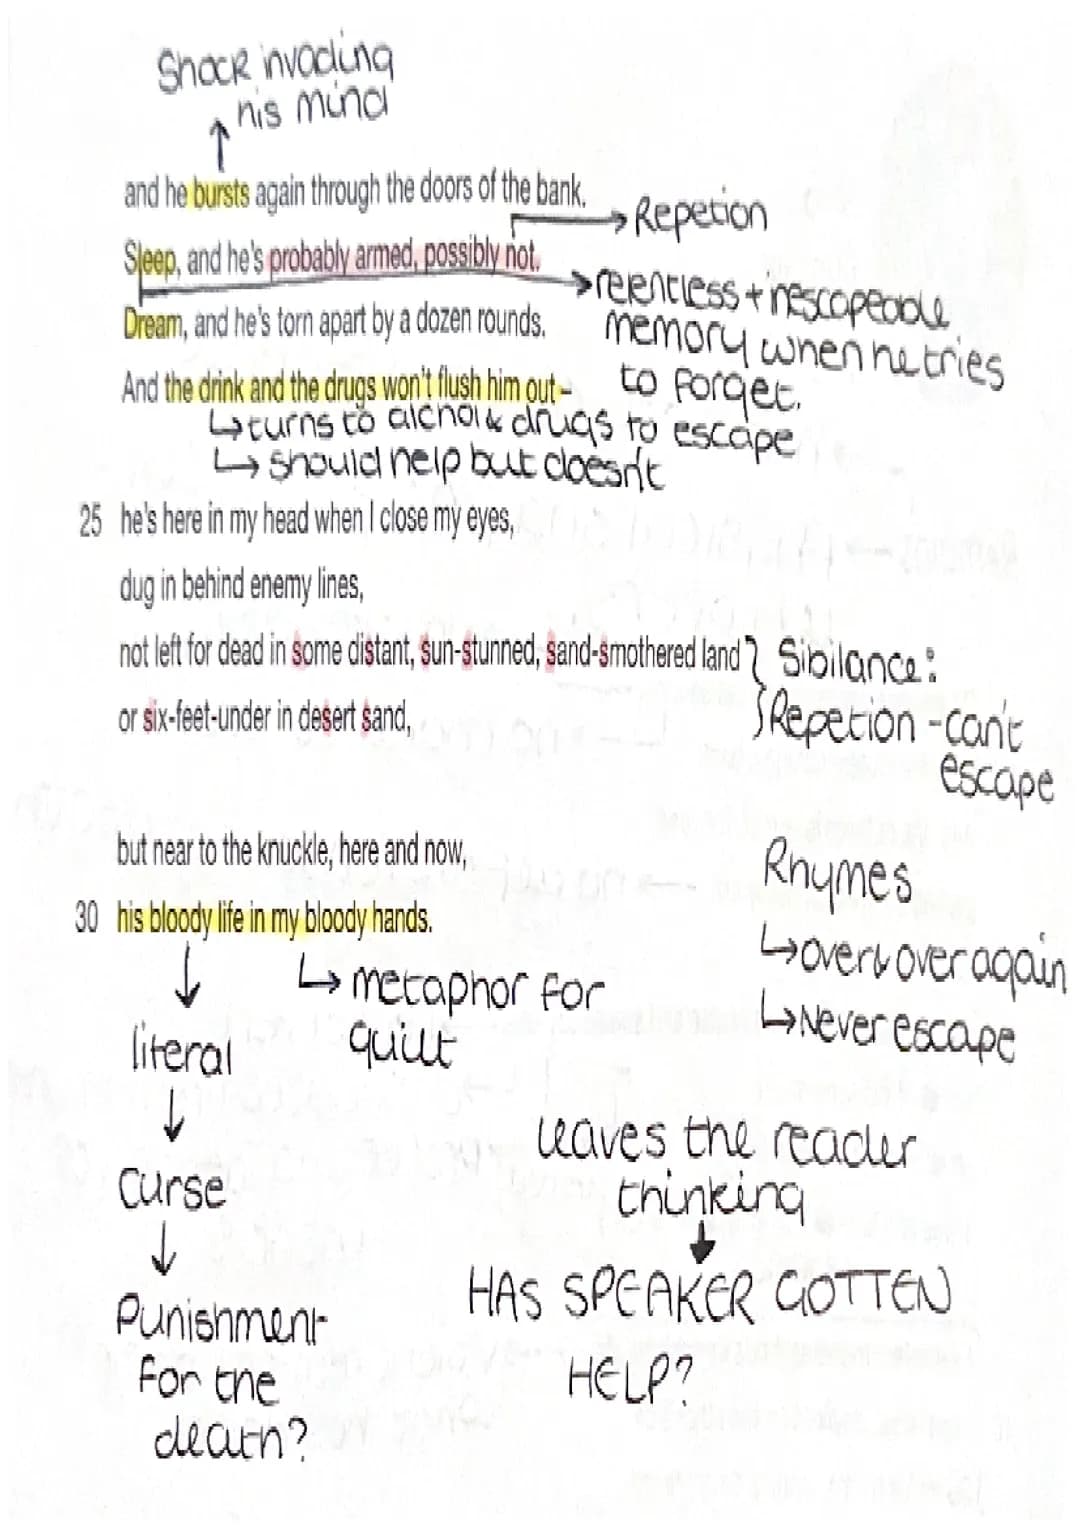 Shock invading
his mind
and he bursts again through the doors of the bank.
Repetion
Sleep, and he's probably armed, possibly not.
relentless + inescapeable
memory when he tries
to forget.
Dream, and he's torn apart by a dozen rounds.
And the drink and the drugs won't flush him out –
↳ turns to alchol & drugs to escape
↳ should help but doesn't
25 he's here in my head when I close my eyes,
dug in behind enemy lines,
not left for dead in some distant, sun-stunned, sand-smothered land
or six-feet-under in desert sand,
Sibilance:
Repetion - can't
escape
but near to the knuckle, here and now,
30 his bloody life in my bloody hands.
Rhymes
↳ over & over again
↳ Never escape
↳ metaphor for
guilt
literal
↓
Curse
↓
Punishment
for the
death?
leaves the reader
thinking
↓
HAS SPEAKER GOTTEN
HELP?